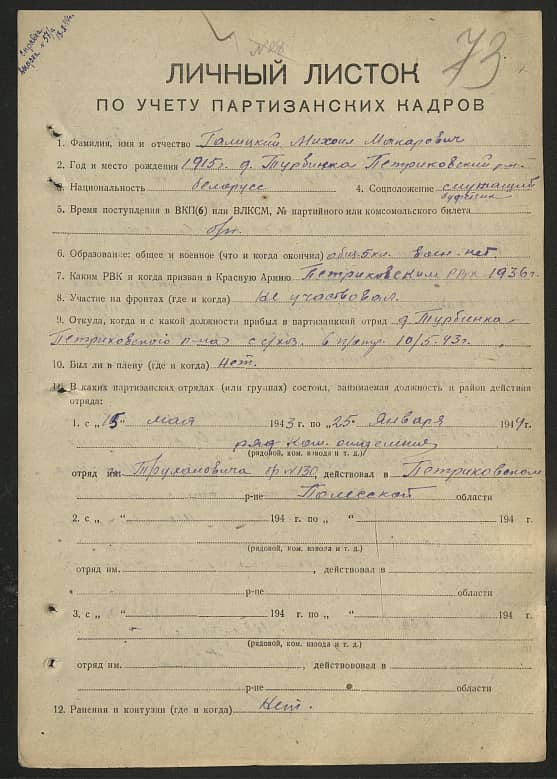 73
ЛИЧНЫЙ ЛИСТОК
ПО УЧЕТУ ПАРТИЗАНСКИХ КАДРОВ
1. Фамилия, имя и отчество Галицкий Михаил Макарович
2. Год и место рождения 1915 г. д. Турбинка Петриковский р-н
3. Национальность белорусс 4. Соцположение служащий
5. Время поступления в ВКП(б) или ВЛКСМ, № партийного или комсомольского билета
6. Образование: общее и военное (что и когда окончил) общ. 5 кл. воен. нет.
7. Каким РВК и когда призван в Красную Армию Петриковским РВК 1936 г.
8. Участие на фронтах (где и когда) Не участвовал.
9. Откуда, когда и с какой должности прибыл в партизанкий отряд д. Турбинка
Петриковского р-на с с/хоз. 10/5-43 г.
10. Был ли в плену (где и когда) Нет.
11. В каких партизанских отрядах (или группах) состоял, занимаемая должность и район действия
отряда:
1. с „15“ мая 1943 г. по „25“ Января 1944 г.
ряд. ком. отделения
(рядовой, ком. взвода и т. д.)
отряд им. Трухановича бр №130, действовал в Петриковском
р-не Полесской области
2. с „ “ 194 г. по „ “ 194 г.
(рядовой, ком. взвода и т. д.)
отряд им. , действовал в
р-не области
3. с „ “ 194 г. по „ “ 194 г.
(рядовой, ком. взвода и т. д.)
отряд им. , действововал в
р-не области
12. Ранения и контузии (где и когда) Нет.